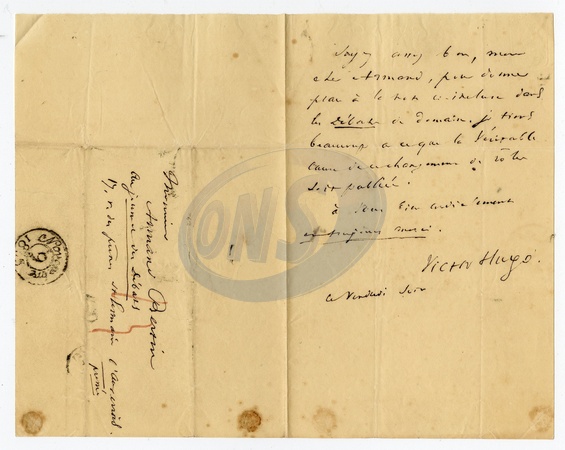 Soyez assez bon, mon
cher Armand, pour donner
place à la note ci-incluse dans
les Débats de demain. je tiens
beaucoup à ce que la véritable
cause de ce changement de rôles
soit publiée.
à vous bien cordialement
et toujours merci.
Victor Hugo.
ce vendredi soir
Monsieur
Armand Bertin
au journal des Débats
17, r. des prêtres St Germain l'auxerrois.
paris
ONS